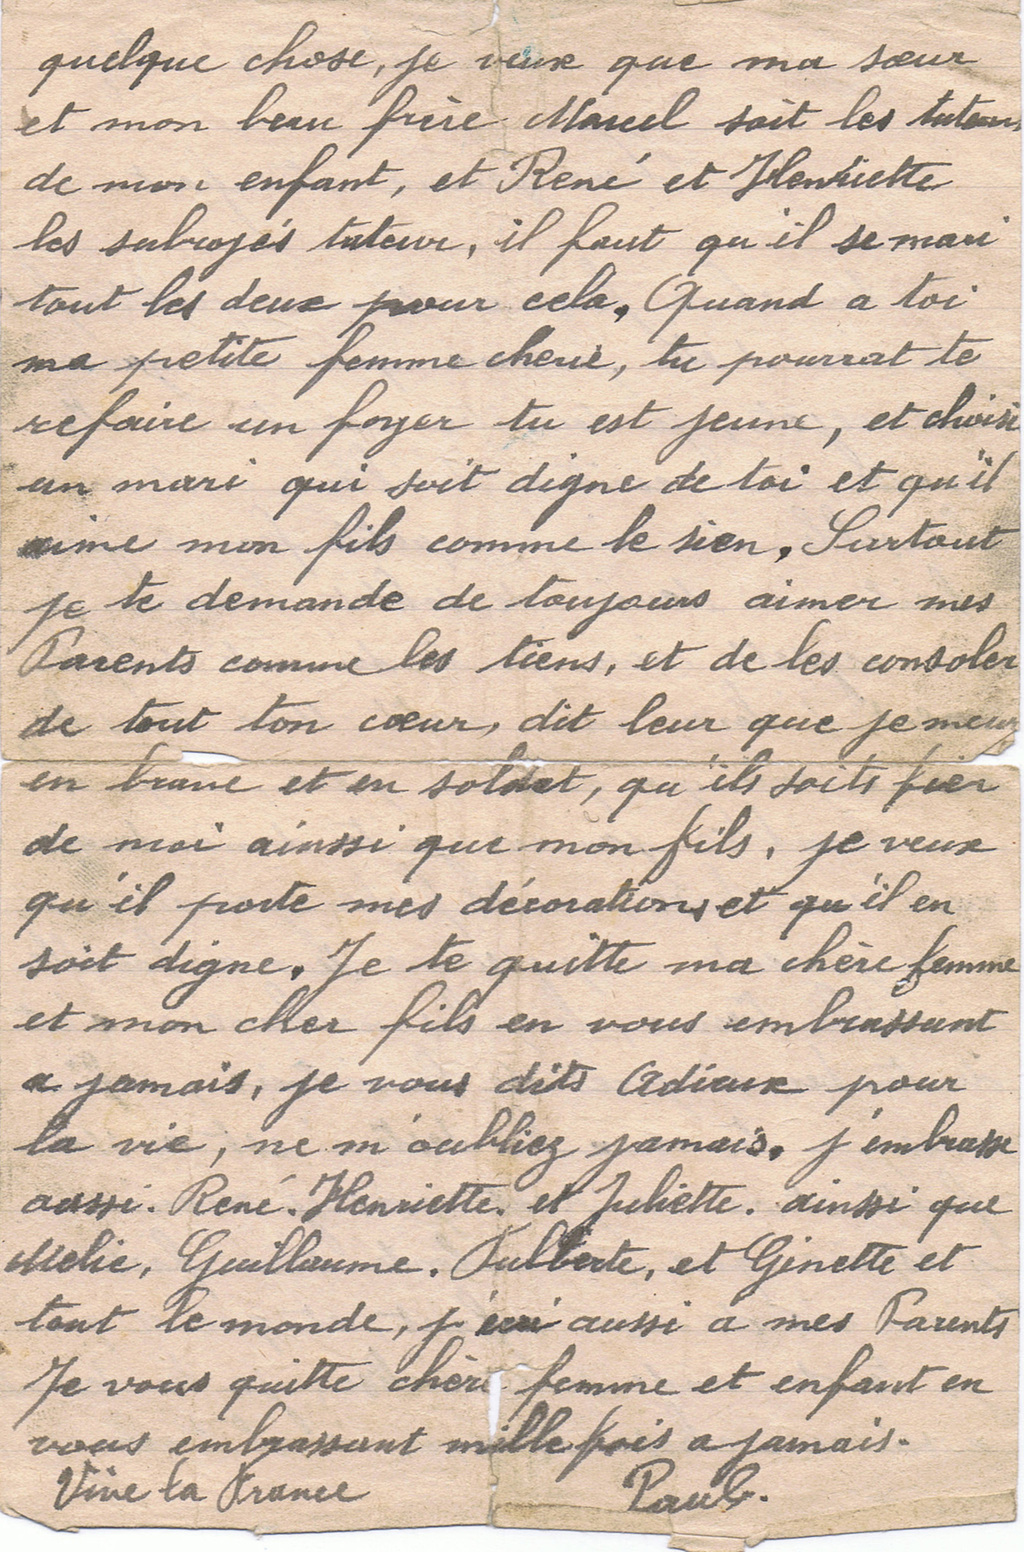 quelque chose, je veux que ma sœur
et mon beau frère Marcel soit les tuteurs
de mon enfant, et René et Henriette
les subrojés tuteur, il faut qu'il se mari
tout les deux pour cela. Quand a toi
ma petite femme cherie, tu pourrat te
refaire un foyer tu est jeune, et choisi
un mari qui soit digne de toi et qu'il
aime mon fils comme le sien. Surtout
je te demande de toujours aimer mes
Parents comme les tiens, et de les consoler
de tout ton cœur, dit leur que je meurs
en brave et en soldat, qu'ils soits fier
de moi ainssi que mon fils, je veux
qu'il porte mes décorations, et qu'il en
soit digne. Je te quitte ma chère femme
et mon cher fils en vous embrassant
a jamais, je vous dits Adieux pour
la vie, ne m'oubliez jamais. j'embrasse
aussi. René. Henriette. et Juliette. ainssi que
Melie, Guillaume. Fulberte, et Ginette et
tout le monde, j'écri aussi a mes Parents
Je vous quitte chère femme et enfant en
vous embrassant mille fois a jamais.
Vive la France Paul.